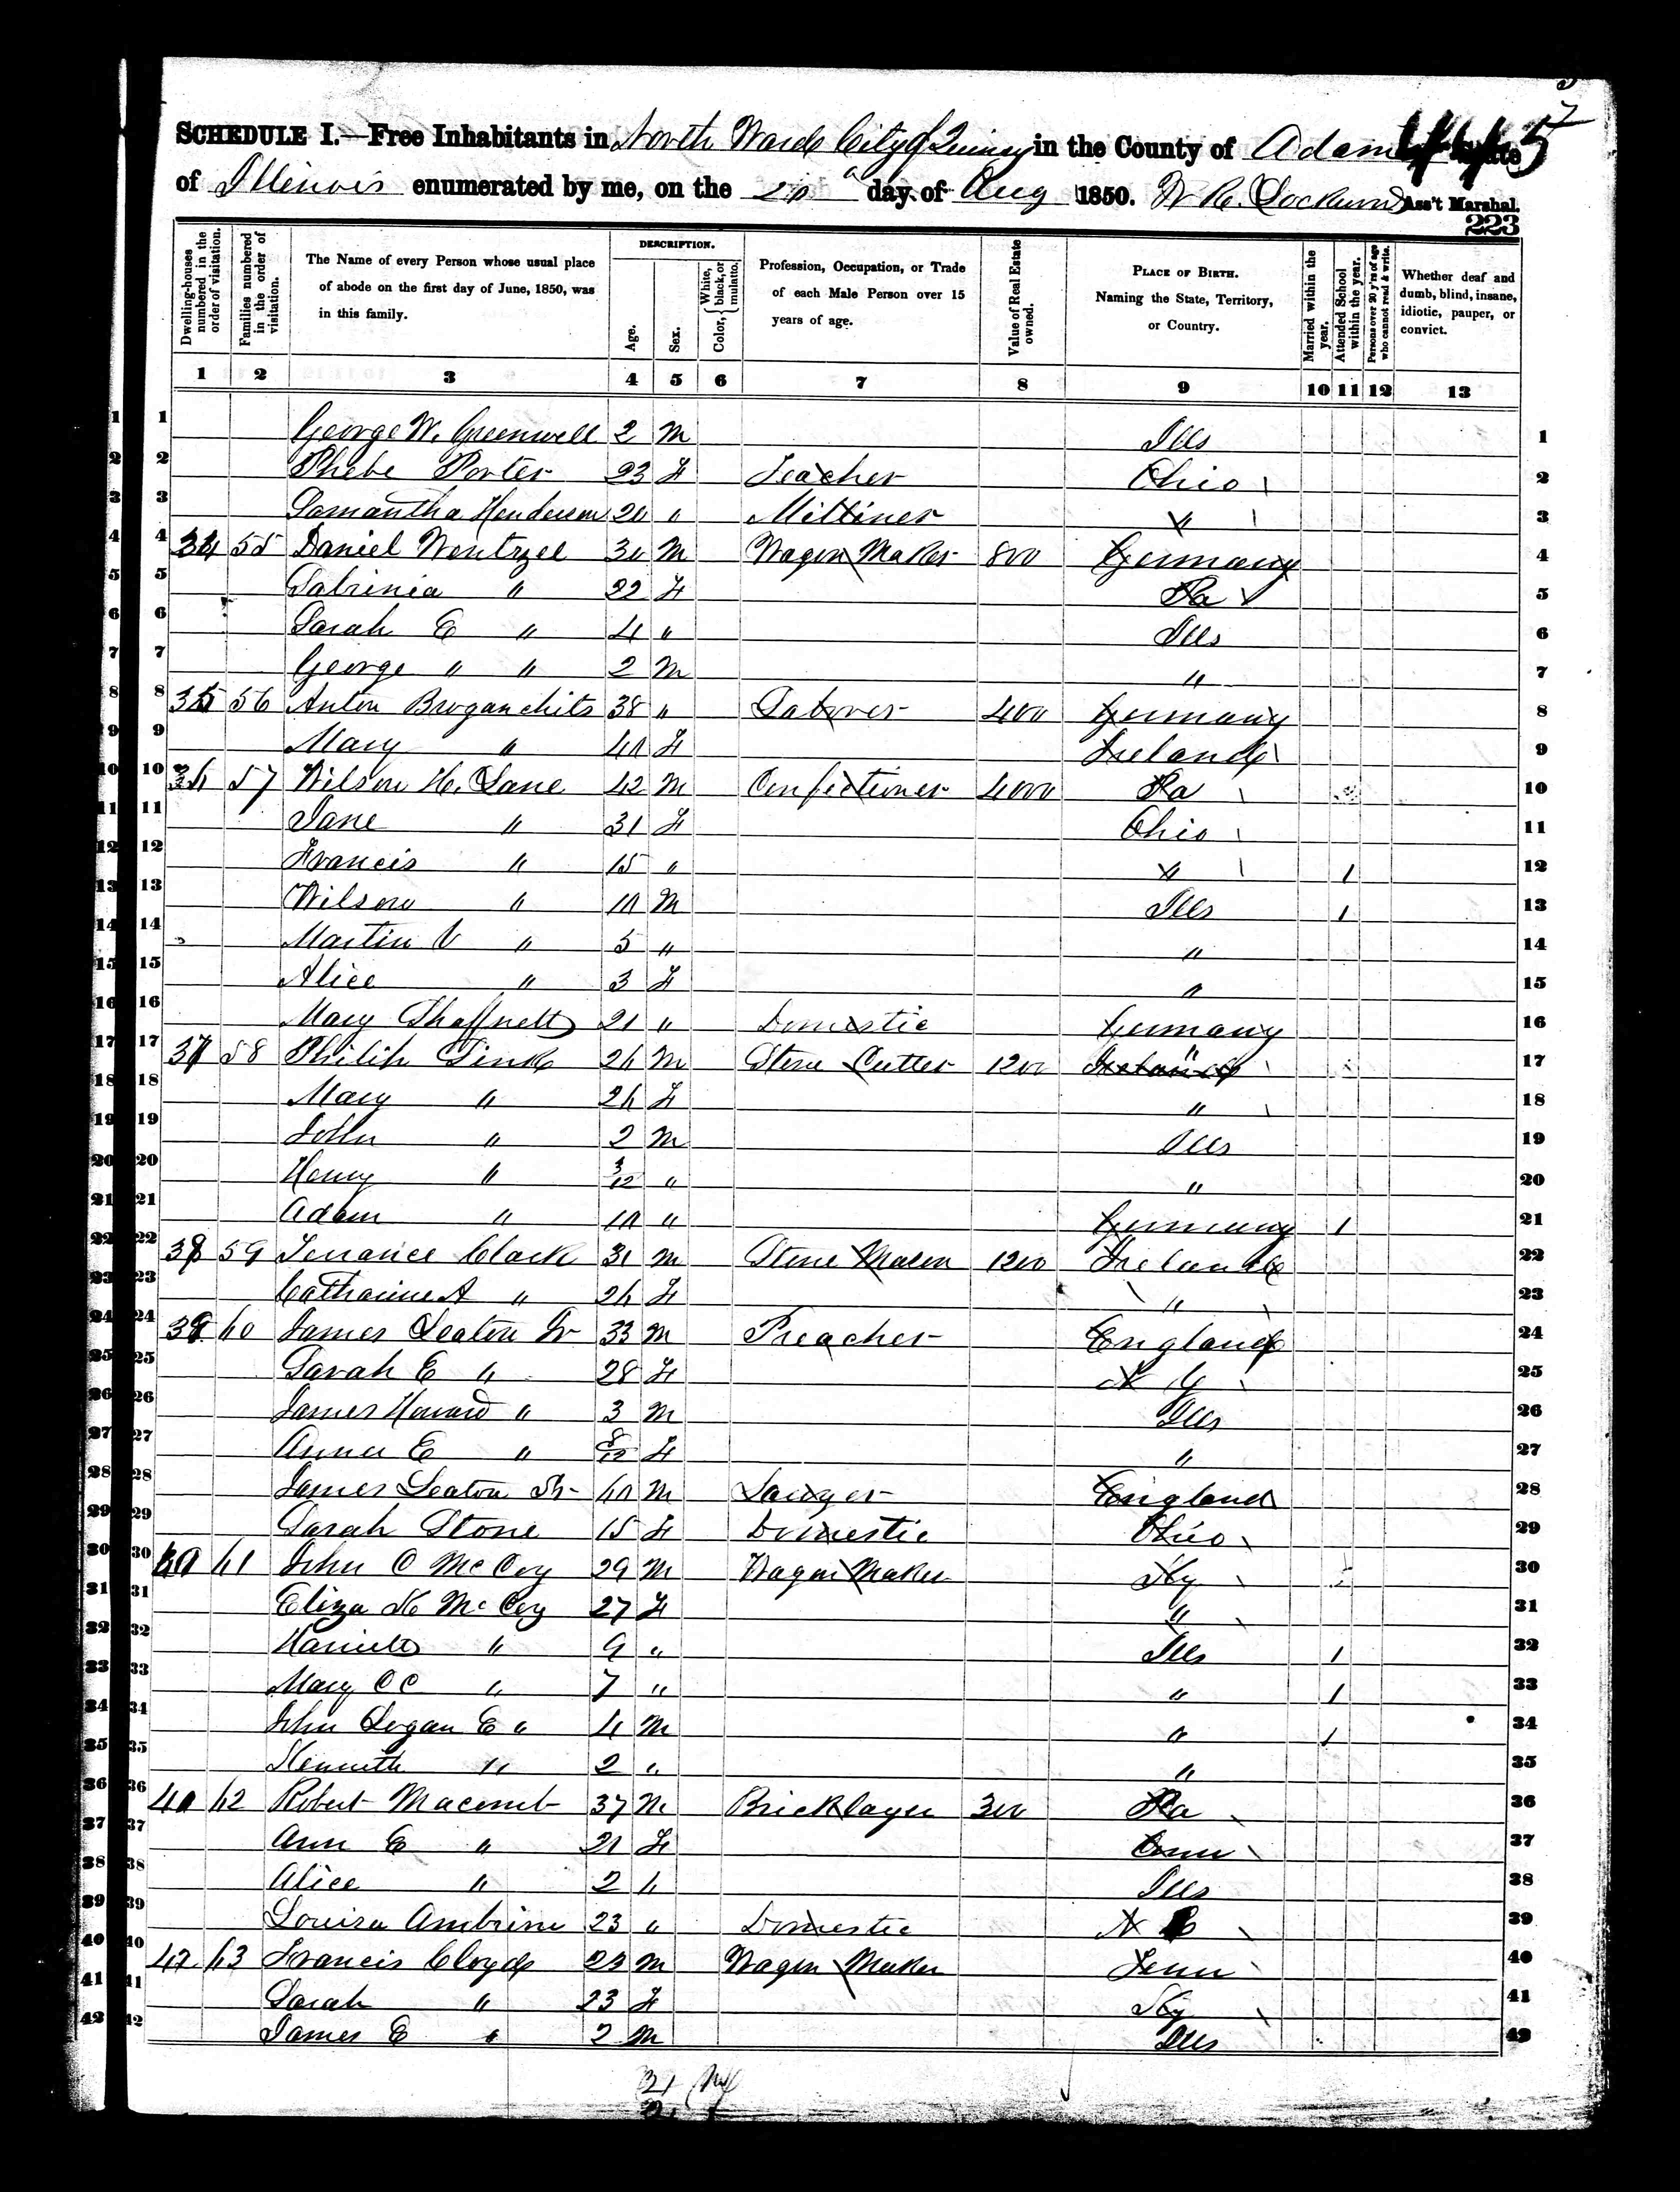 SCHEDULE I.—Free Inhabitants in North Ward City of Quincy in the County of Adams State 5
of Illinois enumerated by me, on the 20 day of Aug 1850. W R. Lockwood Ass't Marshal.
223
Dwelling-houses numbered in the order of visitation. Families numbered in the order of visitation. The Name of every Person whose usual place of abode on the first day of June, 1850, was in this family. DESCRIPTION. Age. Sex. Color, { White, black, or mulatto. Profession, Occupation, or Trade of each Male Person over 15 years of age. Value of Real Estate owned. PLACE OF BIRTH. Naming the State, Territory, or Country. Married within the year. Attended School within the year. Persons over 20 y'rs of age who cannot read & write. Whether deaf and dumb, blind, insane, idiotic, pauper, or convict.
1 2 3 4 5 6 7 8 9 10 11 12 13
1 1 George W. Greenwell 2 M Ills 1
2 2 Phebe Porter 23 F Teacher Ohio 2
3 3 Samantha Henderson 20 " Milliner " 3
4 4 34 55 Daniel Wentzel 30 M Wagon Maker 800 Germany 4
5 5 Sabrinia " 22 F Pa 5
6 6 Sarah E " 4 " Ills 6
7 7 George " " 2 M " 7
8 8 35 56 Anton Broganchits 38 " Laborer 400 Germany 8
9 9 Mary " 40 F Ireland 9
10 10 36 57 Wilson H. Lane 42 M Confectioner 4000 Pa 10
11 11 Jane " 31 F Ohio 11
12 12 Francis " 15 " " 1 12
13 13 Wilson " 10 M Ills 1 13
14 14 Martin V " 5 " " 14
15 15 Alice " 3 F " 15
16 16 Mary Shaffnett 21 " Domestic Germany 16
17 17 37 58 Philip Sink 26 M Stone Cutter 1200 Ireland " 17
18 18 Mary " 26 F " 18
19 19 John " 2 M Ills 19
20 20 Henry " 3/12 " " 20
21 21 Adam " 10 " Germany 1 21
22 22 38 59 Terrance Clark 31 M Stone Mason 1200 Ireland 22
23 23 Catharine A " 26 F " 23
24 24 39 60 James Leaton Jr 33 M Preacher England 24
25 25 Sarah E " 28 F N Y 25
26 26 James Howard " 3 M Ills 26
27 27 Anna E " 8/12 F " 27
28 28 James Leaton Sr 60 M England 28
29 29 Sarah Stone 15 F Domestic Ohio 29
30 30 40 61 John C McCoy 29 M Wagon Maker Ky 30
31 31 Eliza K McCoy 27 F " 31
32 32 Harriett " 9 " Ills 1 32
33 33 Mary CC " 7 " " 1 33
34 34 John Logan E " 4 M " 1 34
35 35 Kenneth " 2 " " 35
36 36 62 Robert Macomb 37 M Bricklayer 300 Pa 36
37 37 Ann E " 21 F Conn 37
38 38 Alice " 2 " Ills 38
39 39 Louisa Ambrine 23 " Domestic N C 39
40 40 42 63 Francis Cloyd 23 M Wagon Maker Tenn 40
41 41 Sarah " 23 F Ky 41
42 42 James E " 2 M Ills 42